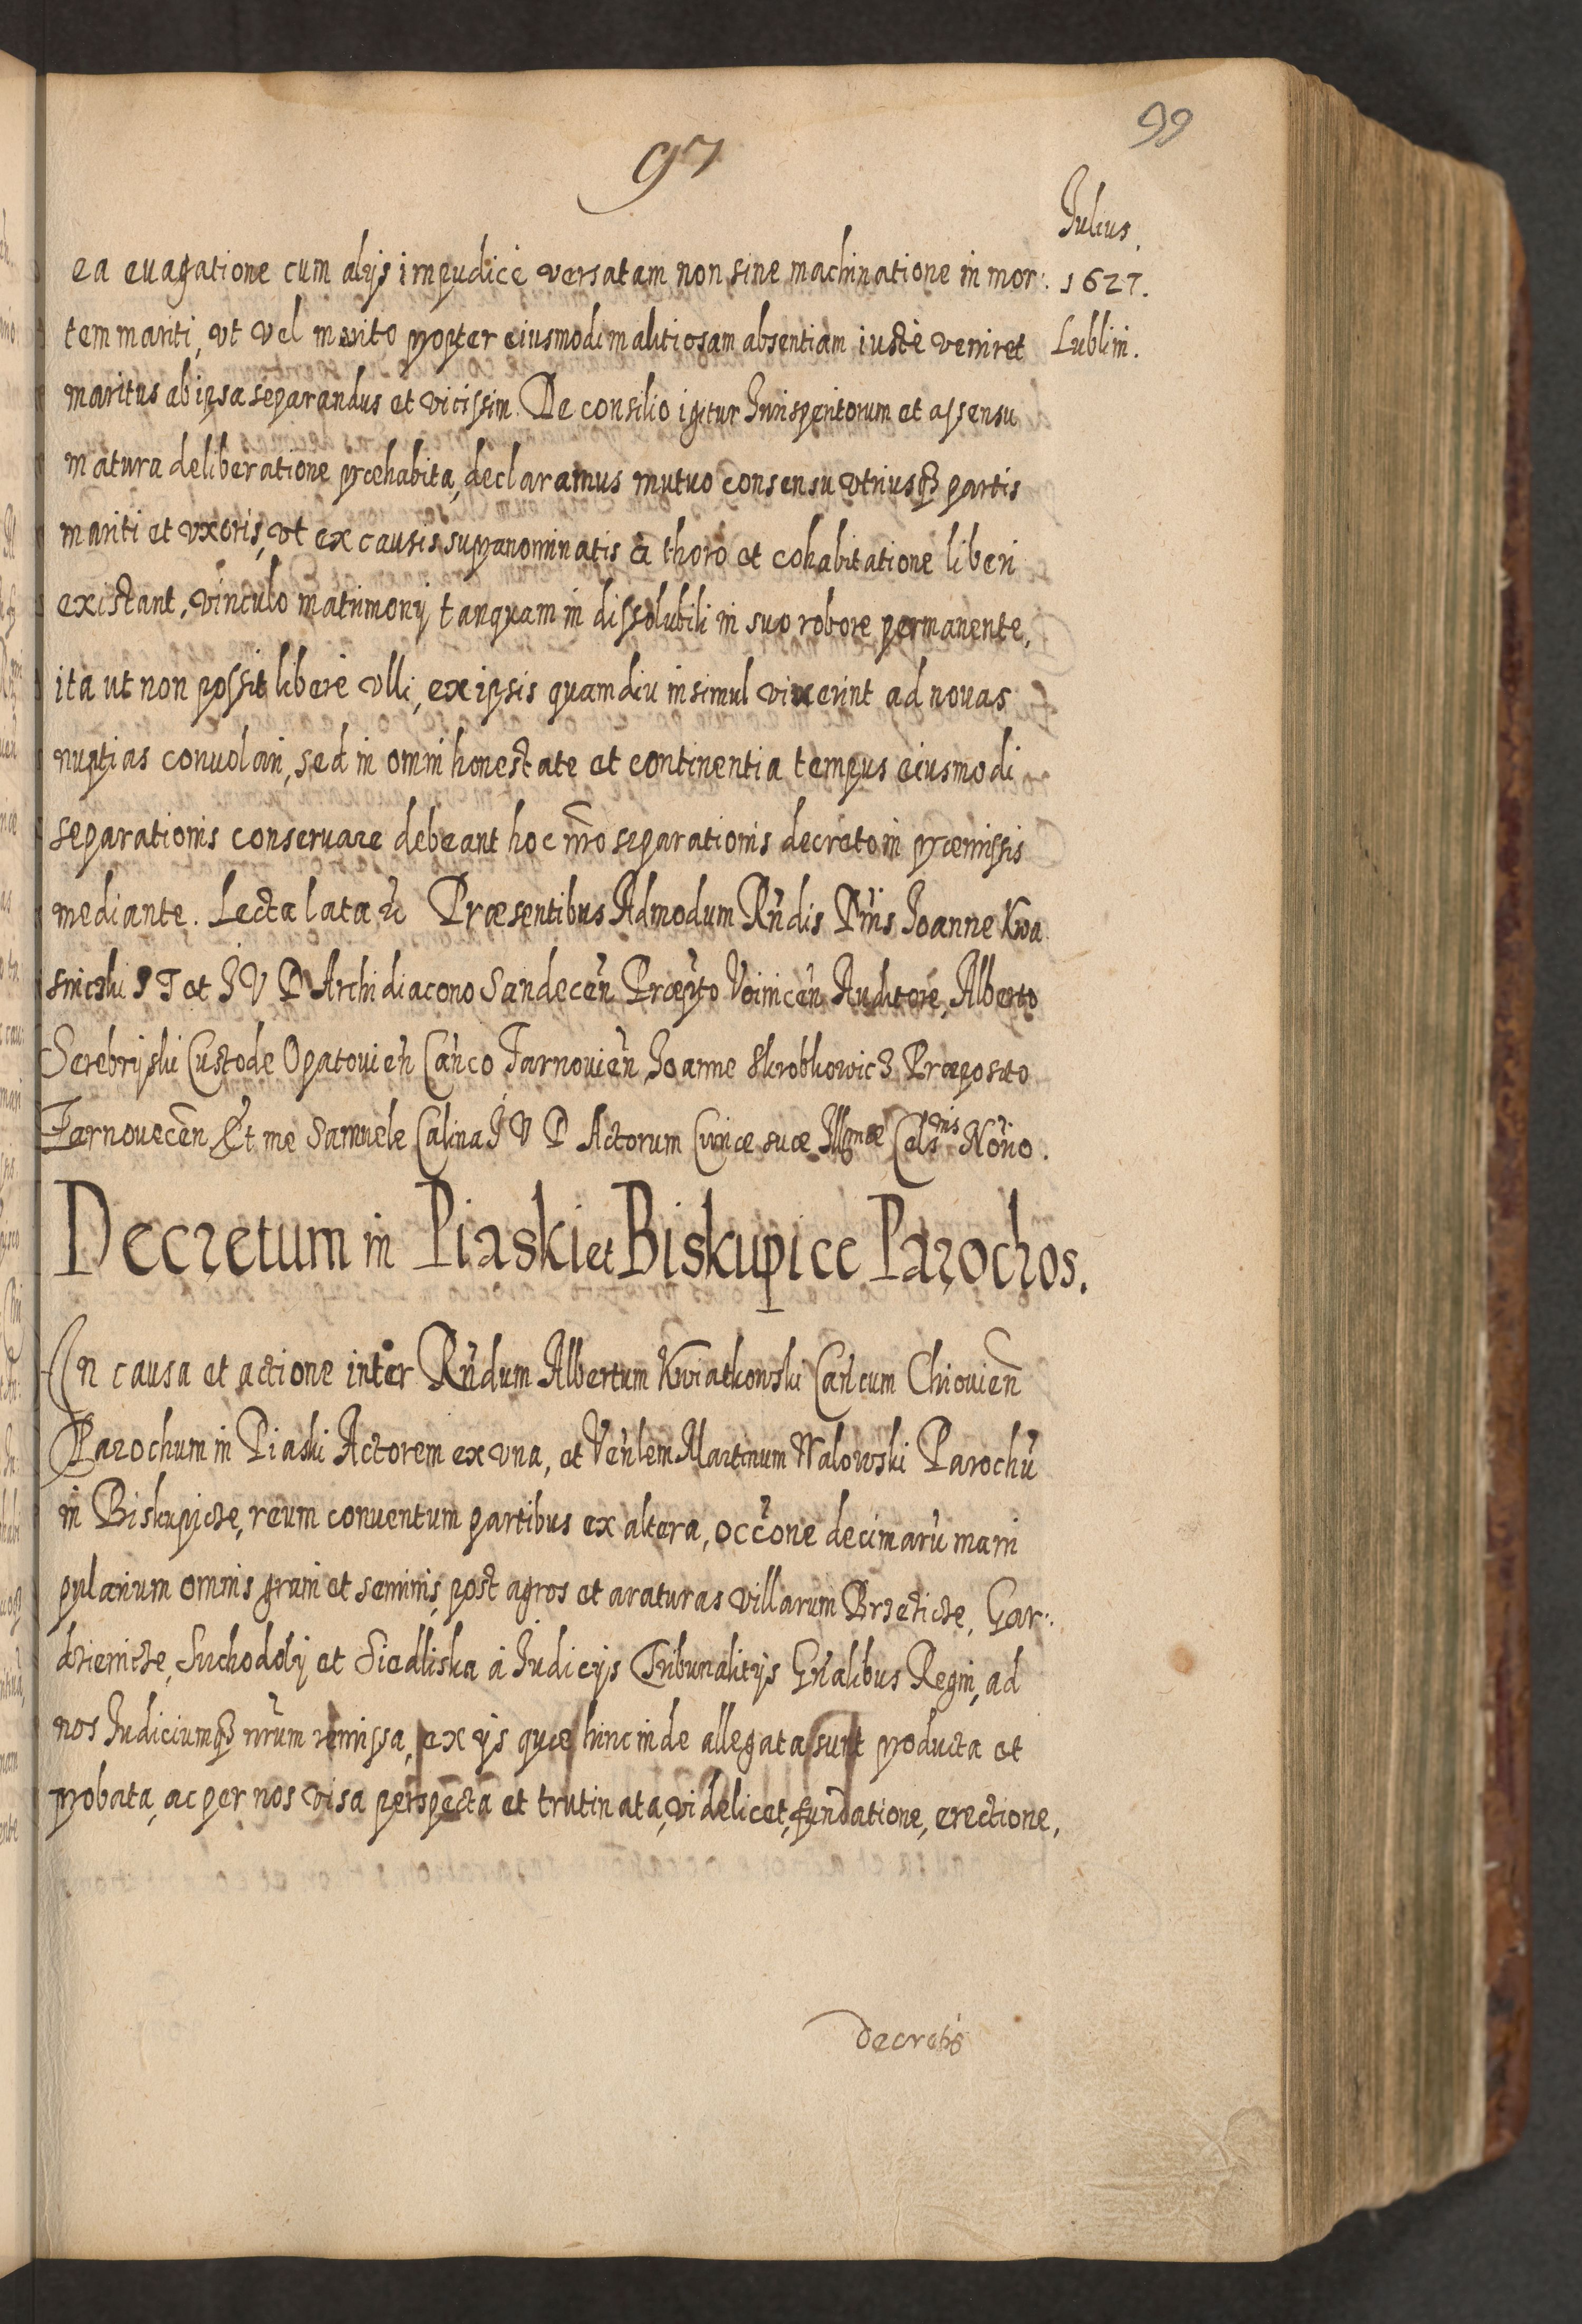 97
99
Julius.
1627.
Lublini.
ea euagatione cum alijs impudicè versatam non sine machinatione in mor:
tem mariti, vt vel merito propter eiusmodi malitiosam absentiam iustè veniret
maritus ab ipsa separandus et vicissim. De consilio igitur Jurisperitorum et assensu
matura deliberatione præhabita, declaramus mutuo consensu vtriusq₃ partis
mariti et vxoris, vt ex causis supranominatis à thoro et cohabitatione liberi
existant, vinculo matrimonij tanquam indissolubili in suo robore permanente,
ita ut non possit liberè vlli, ex ipsis quamdiu insimul vixerint ad nouas
nuptias conuolari, sed in omni honestate et continentia tempus eiusmodi
separationis conseruare debeant hoc nr̃o separationis decreto in præmissis
mediante. Lecta lata &c Præsentibus Admodum Rñdis Dñis Joanne Kwa
sniczki S T et J V D Archidiacono Sandecen̄ Præpto Voinicen̄ Auditore, Alberto
Serebrijski Custode Opatouien̄ Can̄co Tarnouien̄ Joanne Skrobkowicz Præposito
Tarnouecen̄ Et me Samuele Calina J V D Actorum Curiæ suæ Illmæ Celsnis Nōrio.
Decretum in Piaski et Biskupice Parochos.
In causa et actione inter Rñdum Albertum Kwiatkowski Can̄cum Chiouien̄
Parochum in Piaski Actorem ex vna, et Ven̄lem Martinum Walowski Parochū
in Biskupicze, reum conuentum partibus ex altera, occōne decimarū mani
pularium omnis grani et seminis, post agros et araturas villarum Brzeticze, Gar:
dzienicze, Suchodoly et Siedliska à Judicijs Tribunalitijs Gñalibus Regni, ad
nos Judiciumq₃ nr̃um remissa, ex ijs quæ hinc inde allegata sunt producta et
probata, ac per nos visa perspecta et trutinata, videlicet, fundatione, erectione,
decretis